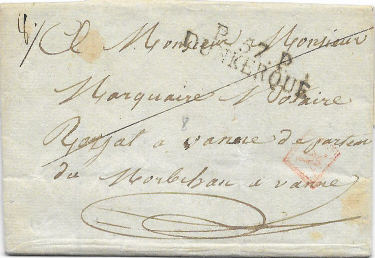 A Monsieur Monsieur
P. 57. P.
DUNKERQUE
Marquaire Notaire
Royal a vanne de parten
du Morbihan a vanne